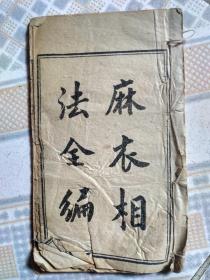 麻衣相
法全编